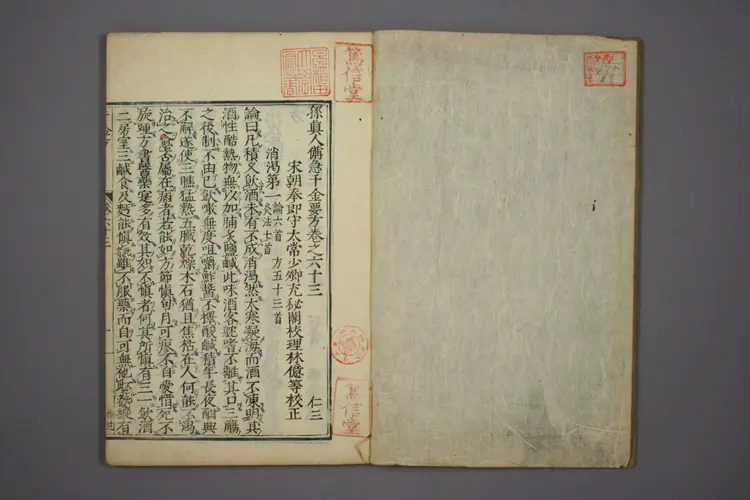 孫真人備急千金要方卷之六十三
仁三
宋朝奉郎守太常少卿充秘閣校理林億等校正
消渴第一
論六首 方五十三首
灸法十首
論曰凡積久飲酒未有不成消渴然大寒凝海而酒不凍明其
酒性酷熱物無以加脯炙鹽鹹此味酒客躭嗜不離其口三觴
之後制不由己飲噉無度咀嚼鮓醬不擇酸鹹積年長夜酣興
不解遂使三膲猛熱五臟乾燥木石猶且焦枯在人何能不渴
治之愈否屬在病者若能如方節慎旬月可瘳不自愛惜死不
旋踵方書醫藥寔多有效其如不慎者何其所慎有三一飲酒
二房室三鹹食及麪能慎此雖不服藥而自可無他
篤信堂
篤信堂